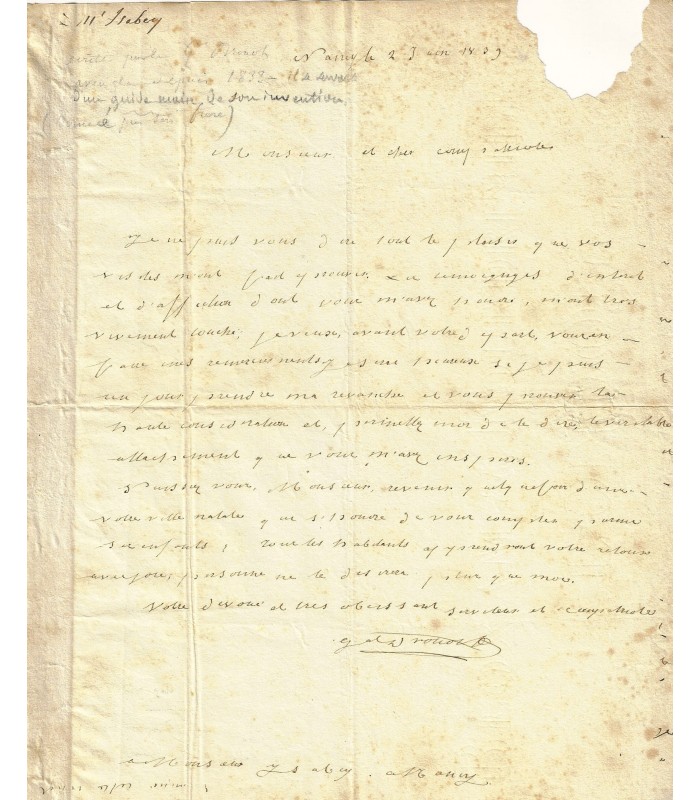 à Mr Isabey
Nancy le 23 juin 1839
1838 – il se servait
d'un guide main de son invention
(            par son frère)
Monsieur et cher compatriote
Je ne puis vous dire tout le plaisir que vos
visites m'ont fait éprouver. Les témoignages d'intérêt
et d'affection dont vous m'avez honoré, m'ont très
vivement touché; je veux, avant votre départ, vous en
faire mes remerciements, je serai heureux si je puis
un jour prendre ma revanche et vous prouver la
haute considération et, permettez moi de le dire, le véritable
attachement que vous m'avez inspirés.
Puissiez vous, Monsieur, revenir quelquefois dans
votre ville natale que s'honore de vous compter parmi
ses enfants; tous les habitants apprendront votre retour
avec joie, personne ne le désirera plus que moi.
Votre dévoué et très obéissant serviteur et compatriote
gal Drouot
à Monsieur Ysabey. à Nancy